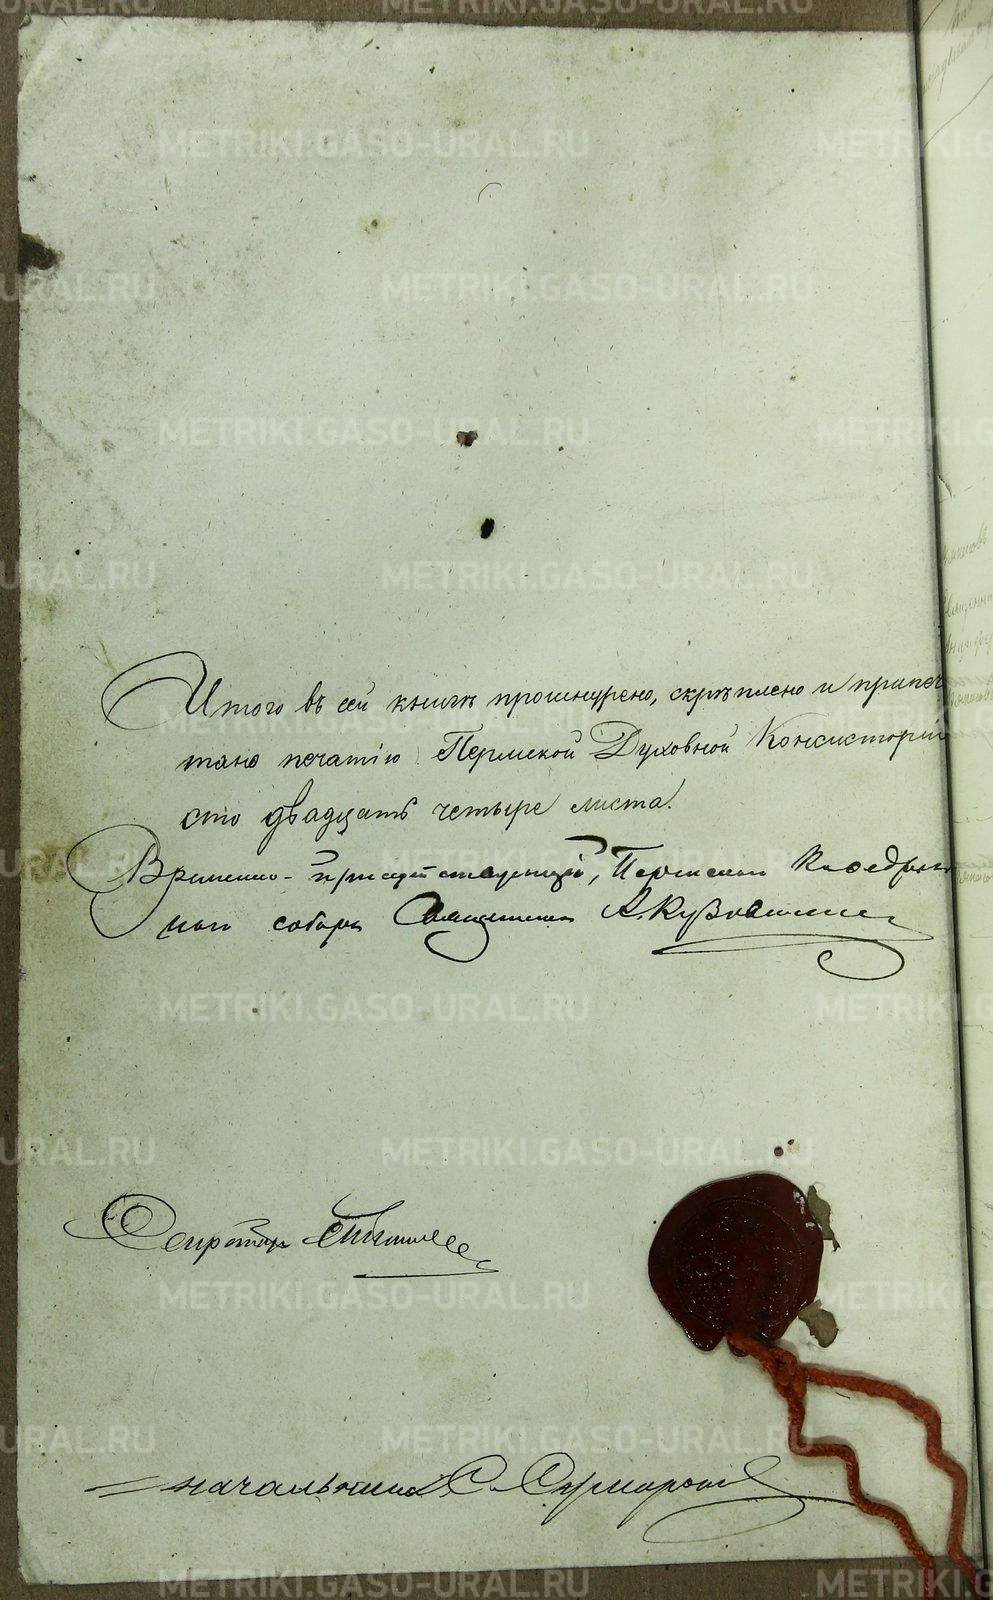 Итого въ сей книгѣ прошнурено, скрѣплено и припеча
тано печатію Пермской Духовной Консисторіи
сто двадцать четыре листа.
Временно-присутствующій, Пермскаго Каѳедраль
наго собора Священникъ А.
Секретарь
Начальника С.
METRIKI.GASO-URAL.RU